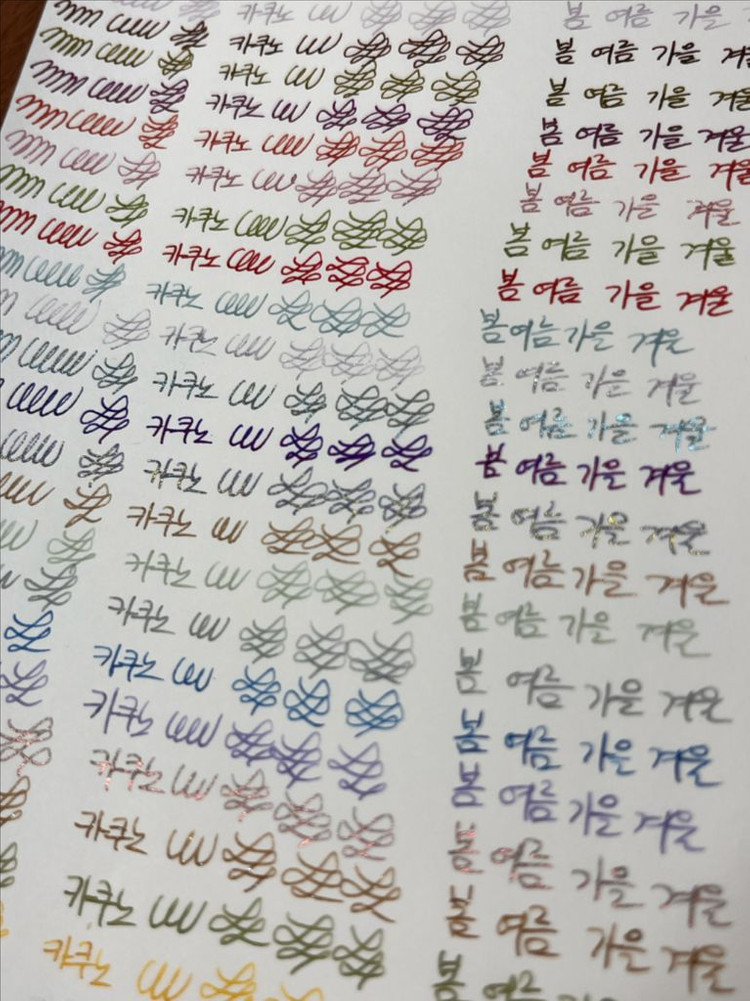 카쿠노 봄 여름 가을
카쿠노 봄 여름 가을
카쿠노 봄 여름 가을
카쿠노 봄 여름 가을 겨울
카쿠노 봄 여름 가을 겨울
카쿠노 봄 여름 가을 겨울
카쿠노 봄 여름 가을 겨울
카쿠노 봄 여름 가을 겨울
카쿠노 봄 여름 가을 겨울
카쿠노 봄 여름 가을 겨울
카쿠노 봄 여름 가을 겨울
카쿠노 봄 여름 가을 겨울
카쿠노 봄 여름 가을 겨울
카쿠노 봄 여름 가을 겨울
카쿠노 봄 여름 가을 겨울
카쿠노 봄 여름 가을 겨울
카쿠노 봄 여름 가을 겨울
카쿠노 봄 여름 가을 겨울
카쿠노 봄 여름 가을 겨울
카쿠노 봄 여름 가을 겨울
카쿠노 봄 여름
카쿠노